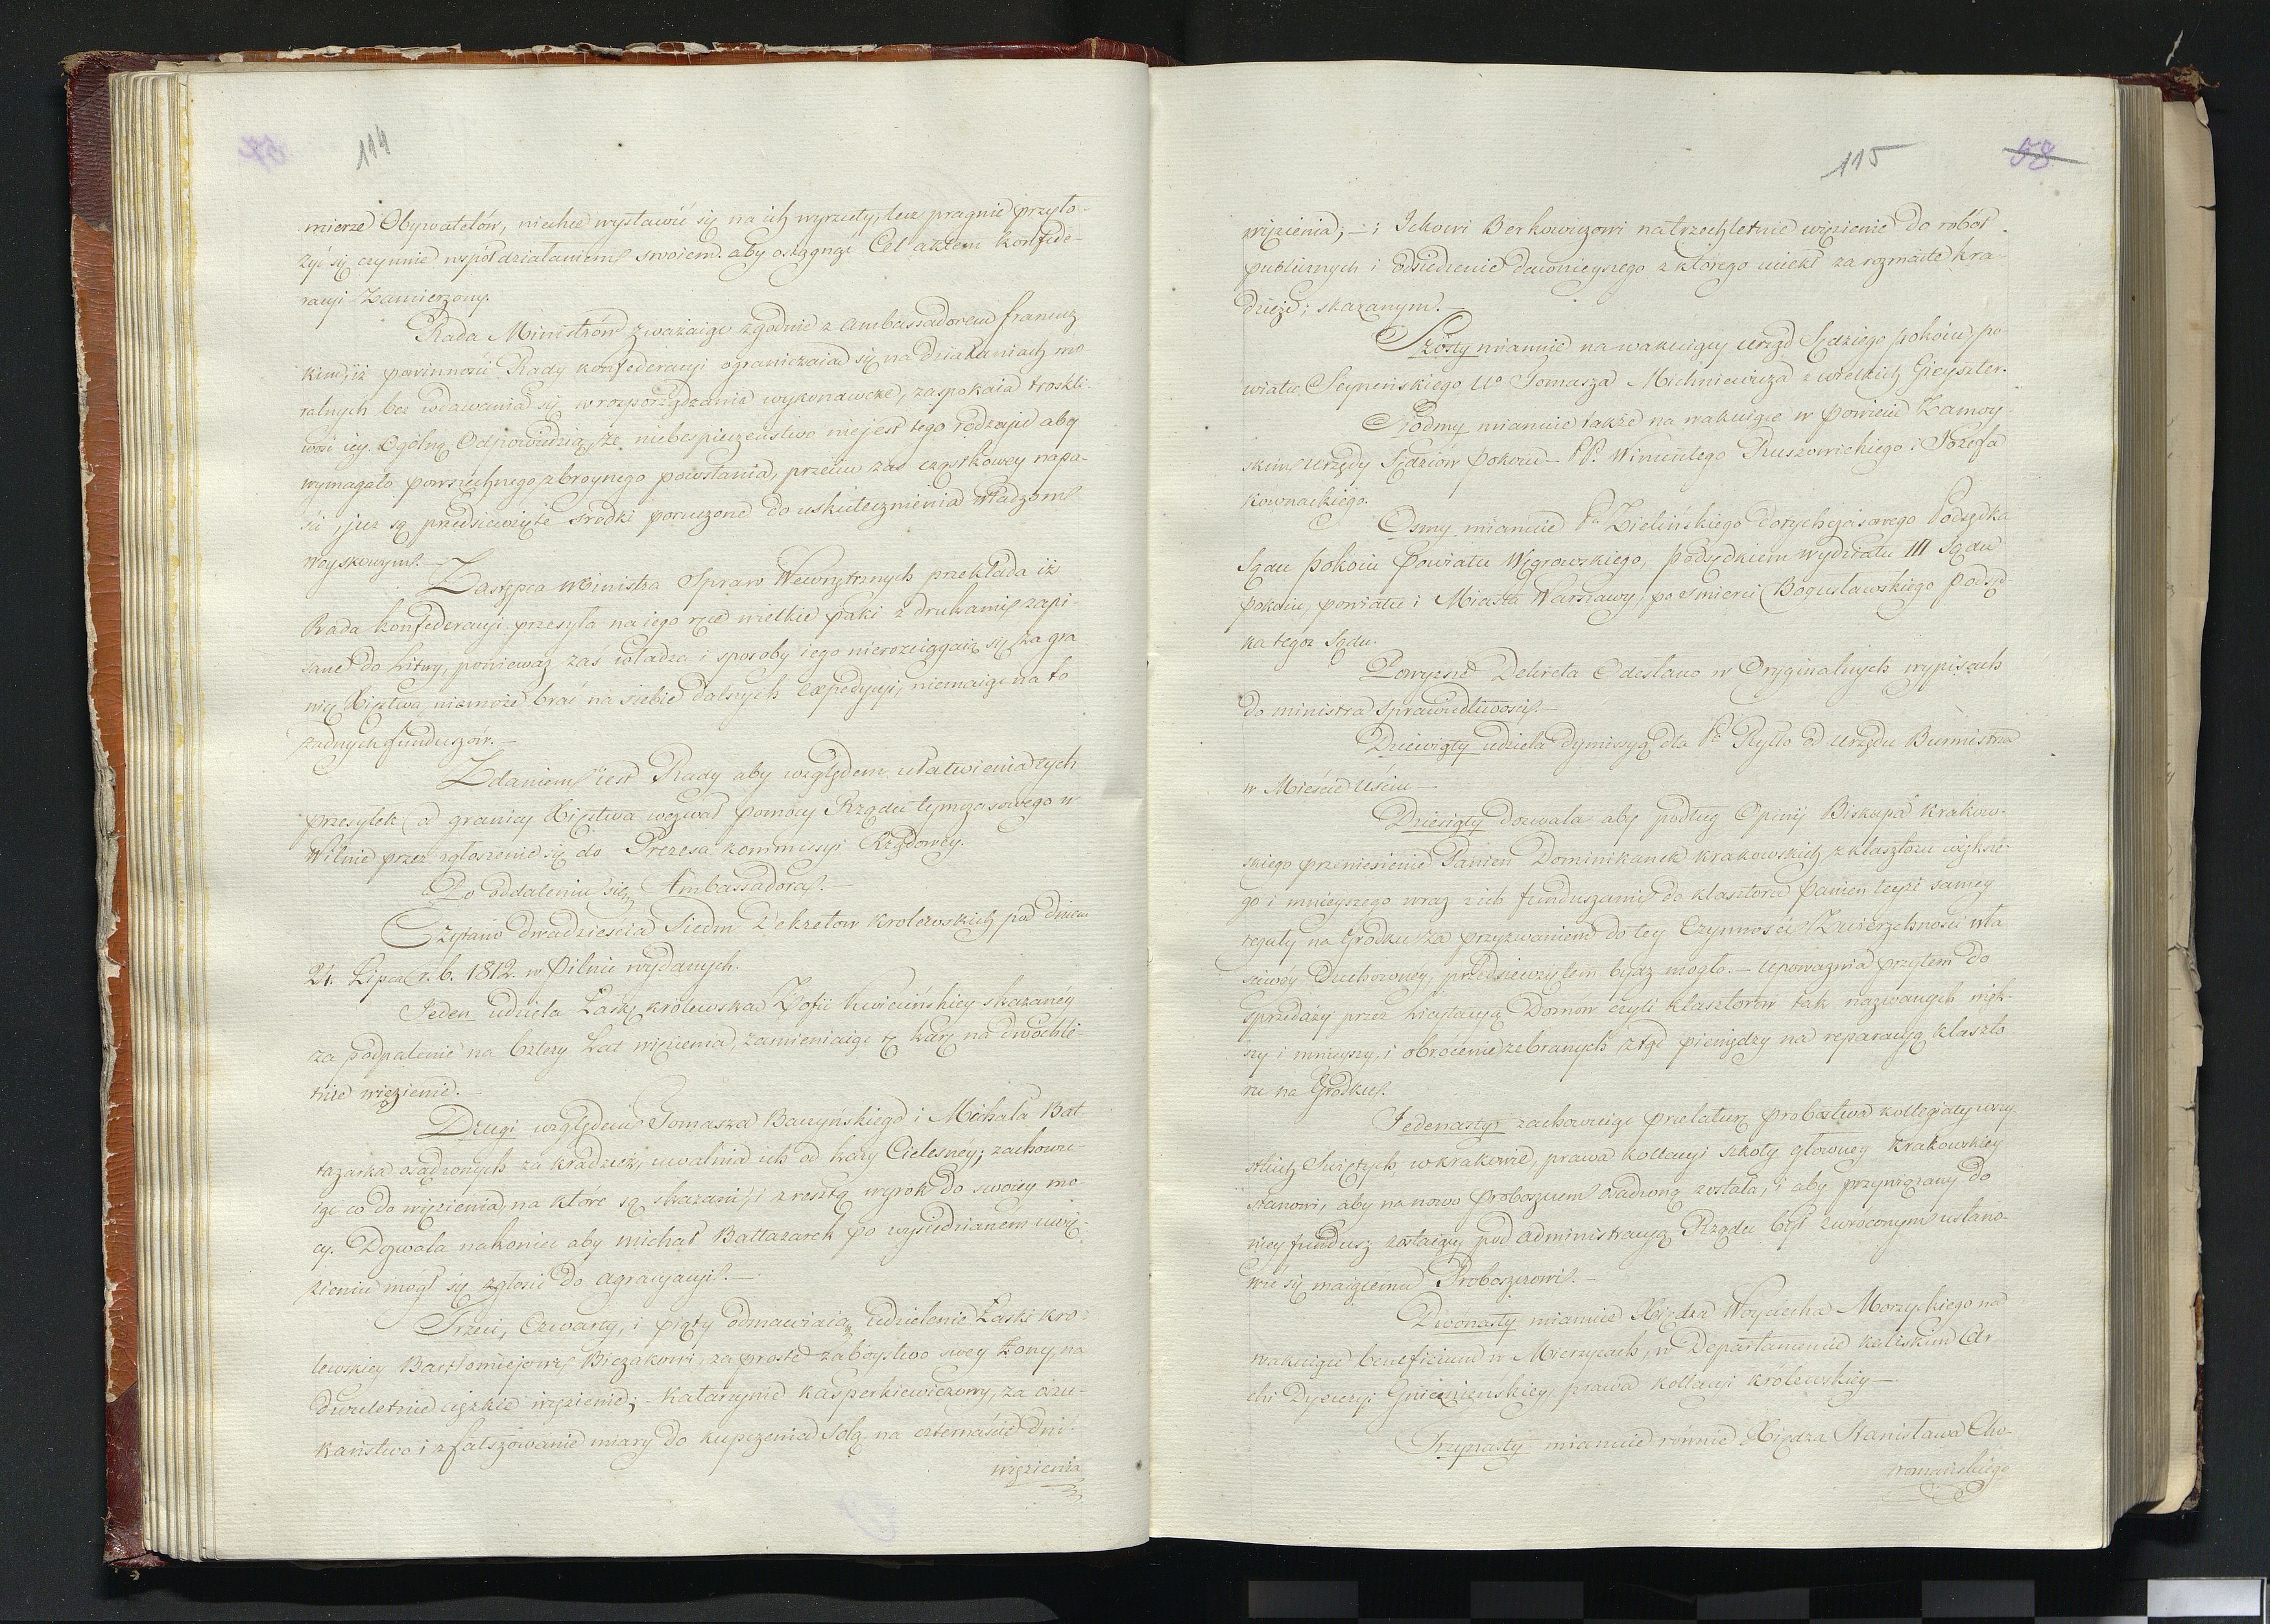 114
mierze Obywatelów, niechce wystawić się na ich wyrzuty, lecz pragnie przyło-
żyć się czynnie współdziałaniem swoiem. aby osiągnąć Cel aktem konfede-
racyi Zamierzony.
Rada Ministrów zważaiąc zgodnie z Ambassadorem francuz
kim, iż powinności Rady konfederacyi ograniczaią się na działaniach mo
ralnych bez wdawania się w rozporządzania wykonawcze, zaspokaia troskli-
wość iey Ogólną Odpowiedzią, że niebespieczeństwo nie jest tego rodzaju aby
wymagało powszechnego zbroynego powstania, przeciw zaś cząstkowey napa-
ści, już są przedsięwzięte srodki poruczone do uskutecznienia władzom
woyskowym. —
Zastępca Ministra Spraw Wewnętrznych przekłada iż
Rada konfederacyi przesyła na iego ręce wielkie paki z drukami zapi-
sane do Litwy, ponieważ zaś władza i sposoby iego nierozciągaią się za gra
nicę Xięstwa, niemoże brać na siebie dalszych expedycyi, niemaiąc na to
żadnych funduszów. —
Zdaniem iest Rady aby względem ułatwienia tych
przesyłek od granicy Xięstwa wezwał pomocy Rządu tymczasowego w
Wilnie przez zgłoszenie się do Prezesa kommissyi Rządowey.
Po oddaleniu się Ambassadora. —
Czytano dwadzieścia Siedm Dekretów krolewskich pod dniem
24. Lipca r. b. 1812. w Pilnie wydanych.
Jeden udziela Łaskę królewska Zofii Kwiecińskiey skazanéy
za podpalenie na cztery Lat więzienia, zamieniaiąc tę karę na dwochle-
tnie więzienie. —
Drugi względem Tomasza Baczynskiego i Michała Bal-
tazarka osądzonych za kradzież, uwalnia ich od kary Cielesnéy; zachowu
iąc co do więzienia, na ktore są skazani, i z resztą wyrok do swoiey mo
cy. Dozwala nakoniec aby michał Baltazarek po wysiedzianém uwię-
zieniu mógł się zgłosić do agracyacyi. —
Trzeci, Czwarty, i piąty odmawiaią udzielenie Łaski kro-
lewskiey Bartłomiejowi Biczakowi, za proste zabóystwo swey żony, na
dwuletnie ciężkie więzienie; - Katarzynie kasperkiewiczowy, za oszu-
kaństwo i zfałszowanie miary do kupczenia Solą, na czternaście dni
więzienia
115
58
więzienia; — i Ickowi Berkowiczowi na trzechletnie więzienie do robót
publicznych i odsiedzenie dawnieyszego z którego uciekł za rozmaite kra-
dzieże; skazanym.
Szósty mianuie na wakuiący urząd Sędziego pokoiu, po-
wiatu Seyneńskiego Uo Tomasza Michniewicza z wielkich Gieyszter.
Siodmy mianuie także na wakuiące w powiecie Zamoy-
skim urzędy Sędziów pokoiu — PP. Wincentego Ruszowickiego i Józefa
kownackiego.
Osmy mianuie Pa Zielińskiego dotychczasowego Podsędka
Sądu pokoiu Powiatu Węgrowskiego, podsędkiem wydziału III Sądu
pokoiu, powiatu i Miasta Warszawy, po smierci Bogusławskiego podsęd-
ka tegoż Sądu.
Powyzsze Dekreta Odesłano w Oryginalnych wypisach
do ministra sprawiedliwości. —
Dziewiąty udziela dymissyę dla Pa Ryłło od urzędu Burmistrza
w Mieście Uściu —
Dziesiąty dozwala aby podług Opinij Biskupa krakow-
skiego przeniesienie Panien Dominikanek krakowskich z klasztoru większe-
go i mnieyszego wraz z ich funduszami do klasztoru panien teyże samey
reguły na Grodku za przyzwaniem do tey Czynności Zwierzchności wła
sciwéy Duchowney, przedsięwzietem bydz mogło. — upoważnia przytem do
sprzedaży przez Licytacyą Domów czyli klasztorów tak nazwanych więk-
szy i mnieyszy, i obrocenie zebranych ztąd pieniędzy na reparacyą klaszto
ru na Grodku.
Jedenasty zachowuiąc prelaturę probostwa kollegiaty wszy-
stkich Swiętych w krakowie, prawa kollacyi szkoły głowney krakowskiey
stanowi, aby na nowo proboszczem osadzoną została, i aby przywiązany do
niey fundusz zostaiący pod administracyą Rządu był zwroconym ustano-
wić się maiącemu Proboszczowi. —
Dwonasty mianuie Xiędza Woyciecha Morzyckiego na
wakuiące beneficium w Mierzycach, w Departamencie kaliskim Ar
chi Dyecezyi Gnieznieńskiey, prawa kollacyi królewskiey —
Trzynasty mianuie rownie Xiędza Stanisława Cho-
womańskiego